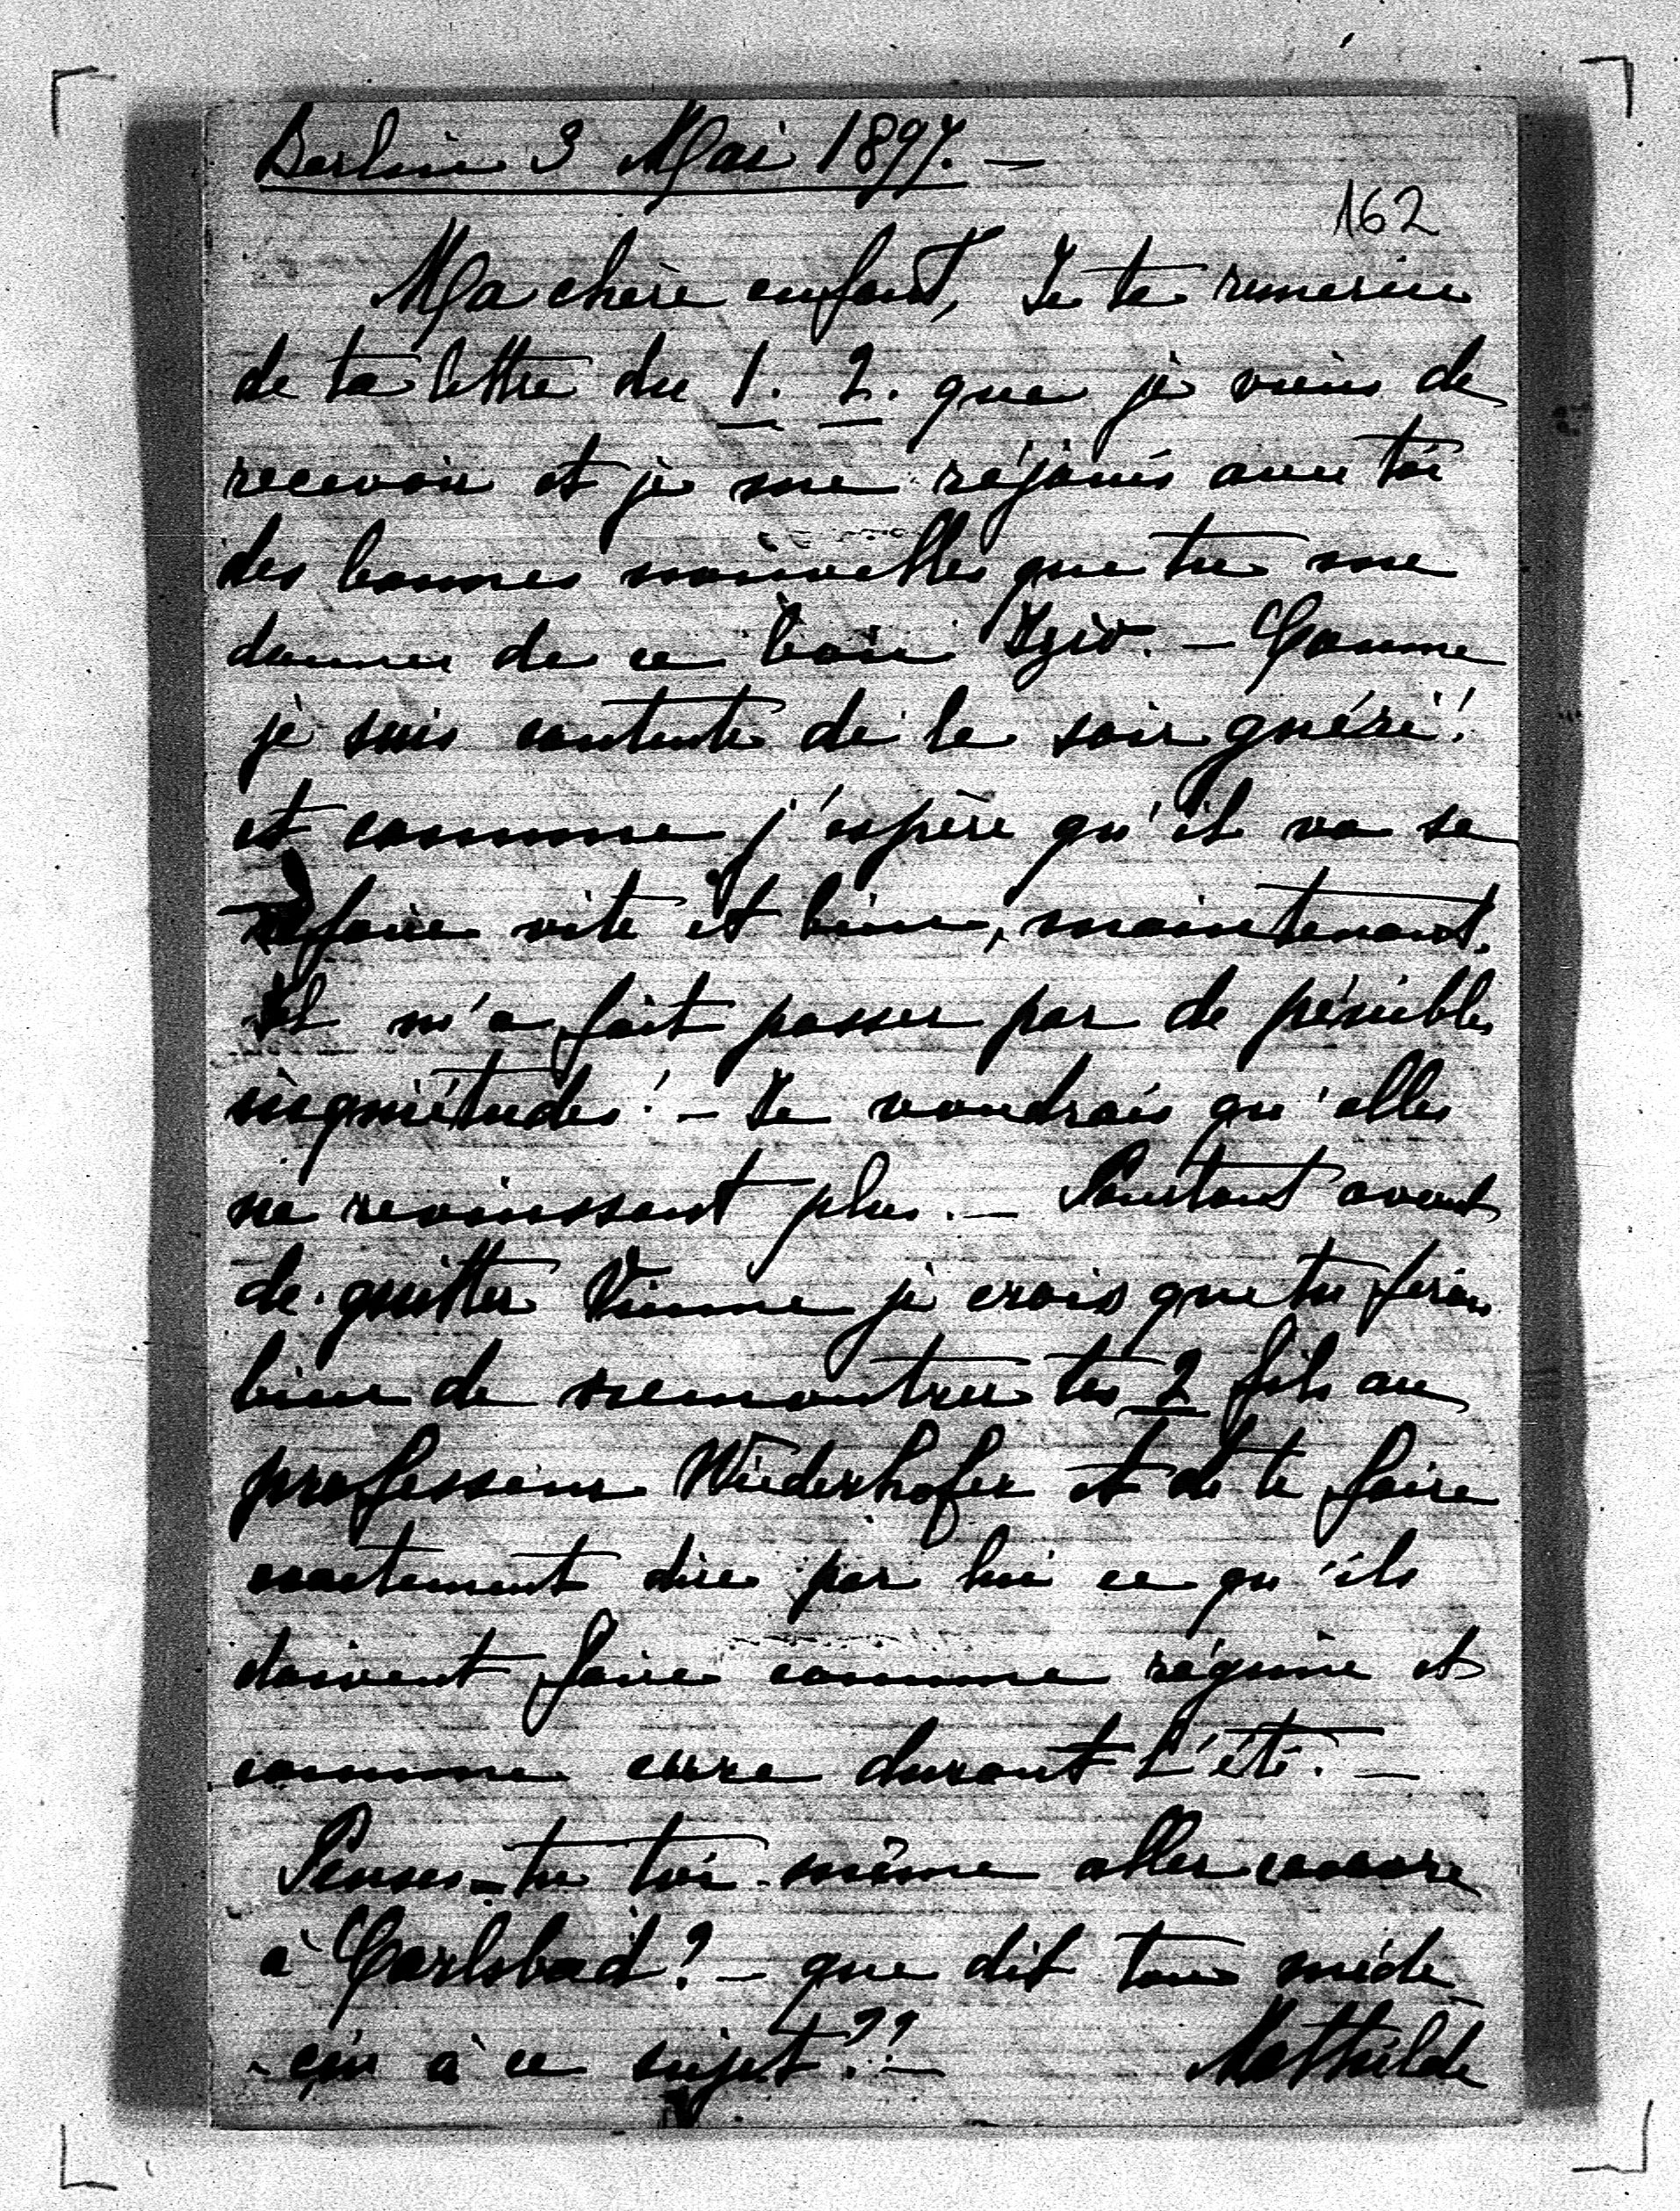 Berlin 3 Mai 1897. —
162
Ma chère enfant, Je te remercie
de ta lettre du 1. 2. que je viens de
recevoir et je me réjouis avec toi
des bonnes nouvelles que tu me
donnes de ce bon — Comme
je suis contente de le voir guéri!
et comme j'espère qu'il va se
refaire vite et bien, maintenant.
Il m'a fait passer par de pénibles
inquiétudes! — Je voudrais qu'elles
ne revinssent plus. — Pourtant avant
de quitter Vienne je crois que tu ferais
bien de remontrer tes 2 fils au
professeur Wiederhofer et de te faire
exactement dire par lui ce qu'ils
doivent faire comme régime et
comme cure durant l'été. —
Penses-tu toi-même aller encore
à Carlsbad? — que dit ton méde-
-cin à ce sujet?? —
Mathilde